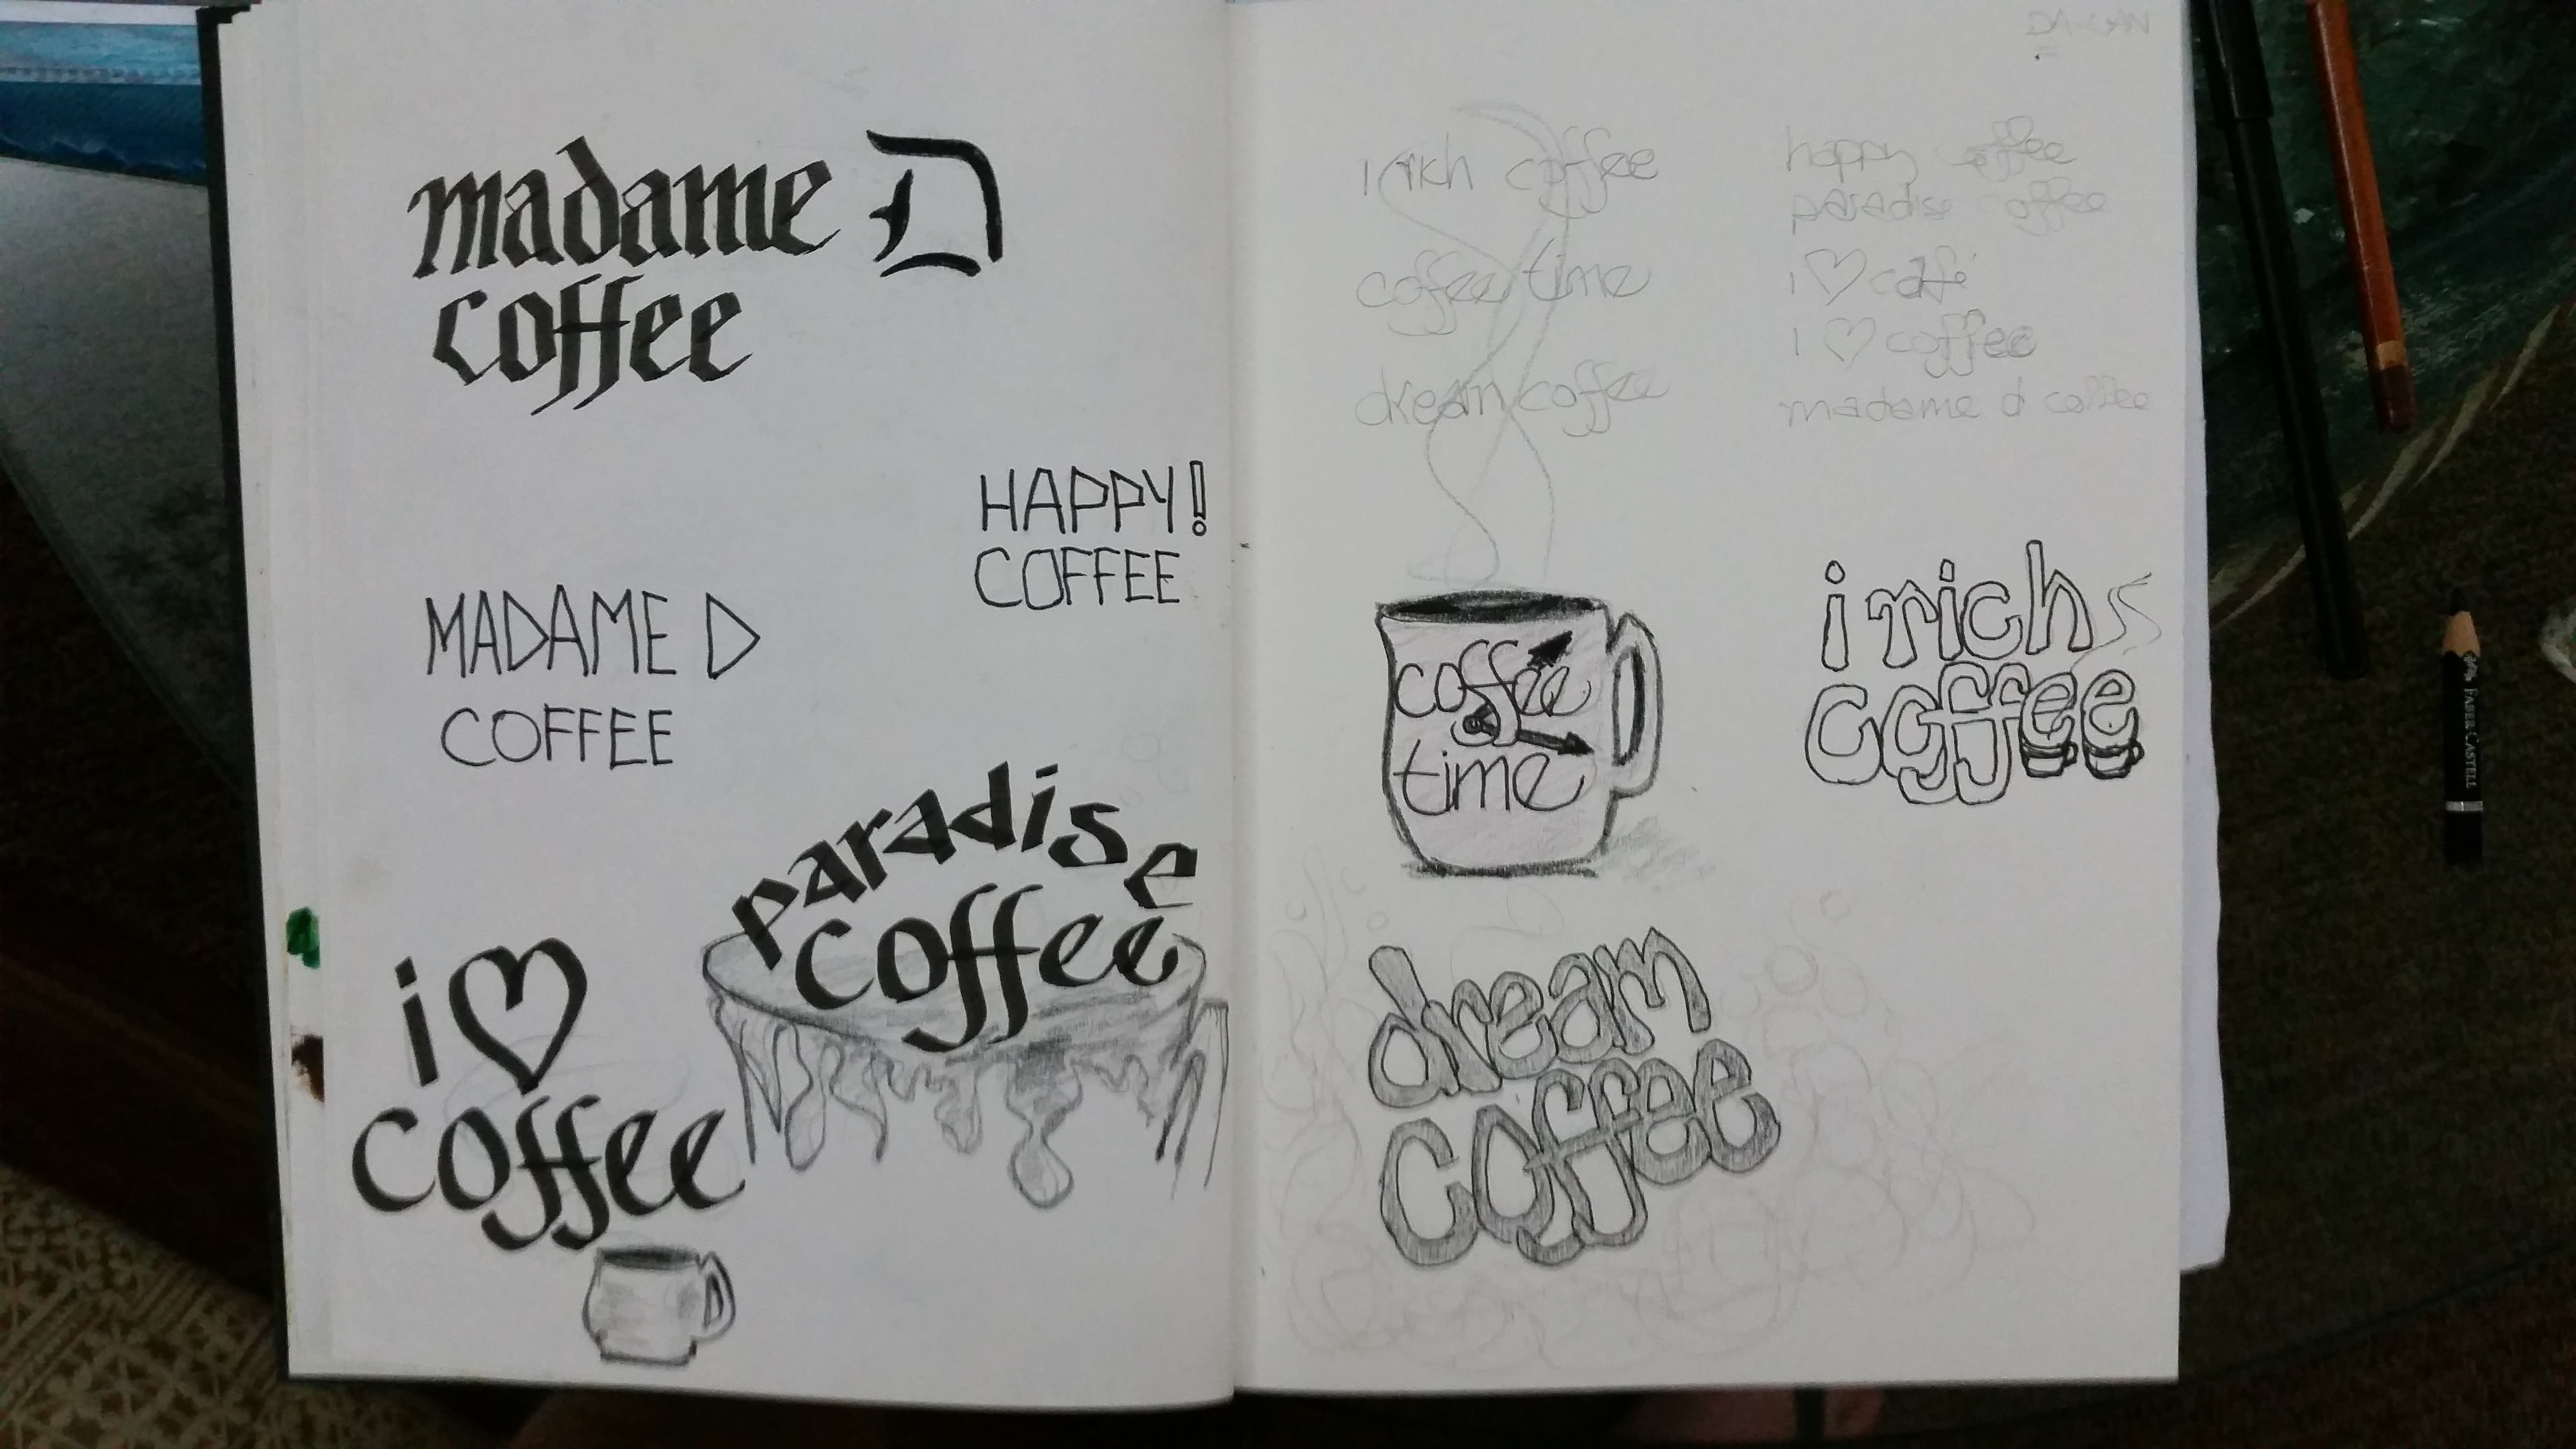 madame D
coffee
HAPPY!
COFFEE
MADAME D
COFFEE
paradise
coffee
i ♡
coffee
i rich coffee
coffee time
dream coffee
happy coffee
paradise coffee
i ♡ café
i ♡ coffee
madame d coffee
coffee
time
i rich
coffee
dream
coffee
FABER-CASTELL